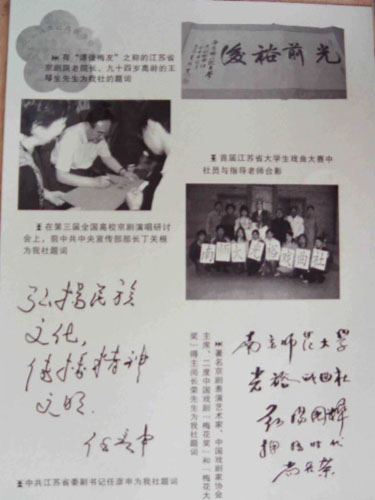 在“谭徒梅友”之称的江苏省
京剧院老院长、九十四岁高龄的王
琴生先生为我社的题词
光前裕後
首届江苏省大学生戏曲大赛中
社员与指导老师合影
在第三届全国高校京剧演唱研讨
会上,前中共中央宣传部部长丁关根
为我社题词
南师大光裕戏曲社
弘扬民族
文化,
传播精神
文明.
任彦申
中共江苏省委副书记任彦申为我社题词
著名京剧表演艺术家、中国戏剧家协会
主席、二度中国戏剧“梅花奖”和“梅花大
奖”得主尚长荣先生为我社题词
南京师范大学
光裕戏曲社
弘扬国粹
拥抱时代
尚长荣